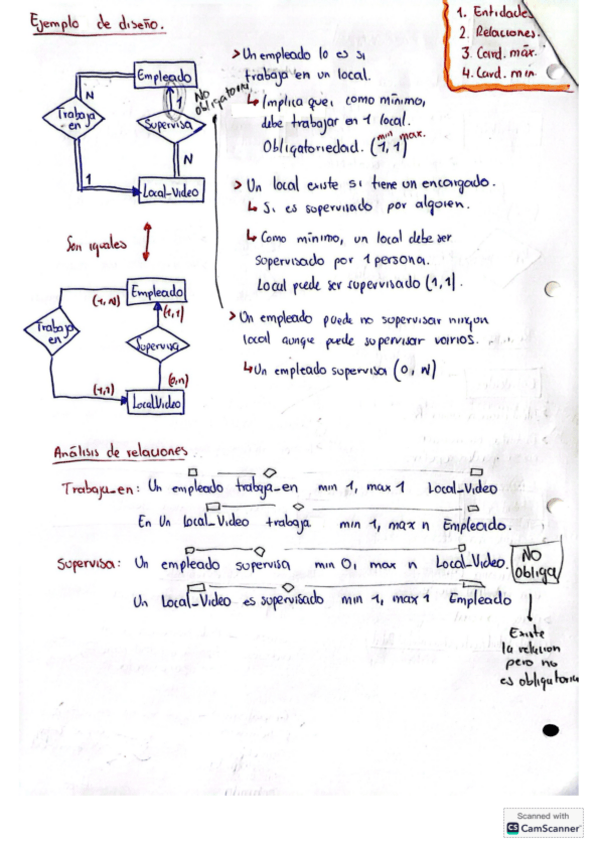 Ejemplo de diseño.
1. Entidades
2. Relaciones.
3. Card. máx.
4. Card. min
Empleado
N
Trabaja
-en
1
No
obligatorio
Supervisa
N
1
Local-Video
Son iguales
Empleado
(1,N)
(1,1)
Trabaja
en
Supervisa
(1,1)
(0,n)
LocalVideo
> Un empleado lo es si
trabaja en un local.
↳ Implica que, como mínimo,
debe trabajar en 1 local.
min max.
Obligatoriedad. (1,1)
> Un local existe si tiene un encargado.
↳ Si es supervisado por alguien.
↳ Como mínimo, un local debe ser
supervisado por 1 persona.
Local puede ser supervisado (1,1).
> Un empleado puede no supervisar ningún
local aunque puede supervisar varios.
↳ Un empleado supervisa (0, N)
Análisis de relaciones.
Trabaja_en: Un empleado trabaja_en min 1, max 1 Local_Video
En Un Local_Video trabaja min 1, max n Empleado.
Supervisa: Un empleado supervisa min 0, max n Local_Video.
Un Local_Video es supervisado min 1, max 1 Empleado
NO
obliga
Existe
la relacion
pero no
es obligatoria
Scanned with
CS CamScanner